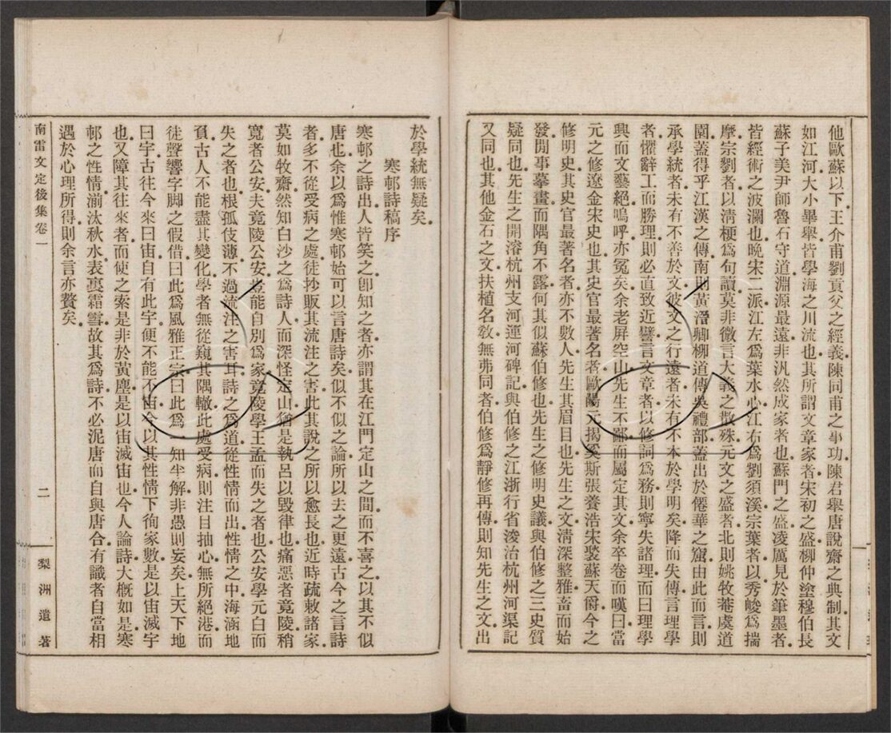 他歐蘇以下王介甫劉貢父之經義陳同甫之事功陳君舉唐說齋之典制其文
如江河大小畢舉皆學海之川流也其所謂文章家者宋初之盛柳仲塗穆伯長
蘇子美尹師魯石守道淵源最遠非汎然成家者也蘇門之盛凌厲見於筆墨者
皆經術之波瀾也晚宋二派江左爲葉水心江右爲劉須溪宗葉者以秀峻爲揣
摩宗劉者以清梗爲句讀莫非微言大義之散殊元文之盛者北則姚牧菴虞道
園蓋得乎江漢之傳南則黃溍卿柳道傳吳禮部蓋出於僊華之窟由此而言則
承學統者未有不善於文彼文之行遠者未有不本於學明矣降而失傳言理學
者懼辭工而勝理則必直致近譬言文章者以修詞爲務則寧失諸理而曰理學
興而文藝絕嗚呼亦冤矣余老屏空山先生不鄙而屬定其文余卒卷而嘆曰當
元之修遼金宋史也其史官最著名者歐陽元揭奚斯張養浩宋褧蘇天爵今之
修明史其史官最著名者亦不數人先生其眉目也先生之文清深整雅畜而始
發閒事摹畫而隅角不露何其似蘇伯修也先生之修明史議與伯修之三史質
疑同也先生之開濬杭州支河運河碑記與伯修之江浙行省浚治杭州河渠記
又同也其他金石之文扶植名敎無弗同者伯修爲靜修再傳則知先生之文出
於學統無疑矣
寒邨詩稿序
寒邨之詩出人皆笑之卽知之者亦謂其在江門定山之間而不喜之以其不似
唐也余以爲惟寒邨始可以言唐詩矣似不似之論所以去之更遠古今之言詩
者多不從受病之處徒抄販其流注之害此其說之所以愈長也近時疏敕諸家
莫如牧齋然知白沙之爲詩人而深怪定山猶是執呂以毀律也痛惡者竟陵稍
寬者公安夫竟陵公安豈能自別爲家竟陵學王孟而失之者也公安學元白而
失之者也根孤伎薄不過流注之害耳詩之爲道從性情而出性情之中海涵地
負古人不能盡其變化學者無從窺其隅轍此處受病則注目抽心無所絕港而
徒聲響字脚之假借曰此爲風雅正宗曰此爲一知半解非愚則妄矣上天下地
曰宇古往今來曰宙自有此宇便不能不宙今以其性情下徇家數是以宙滅宇
也又障其往來者而使之索是非於黃塵是以宙滅宙也今人論詩大槪如是寒
邨之性情湔汰秋水表裏霜雪故其爲詩不必泥唐而自與唐合有識者自當相
遇於心理所得則余言亦贅矣
南雷文定後集卷一
二
梨洲遺著